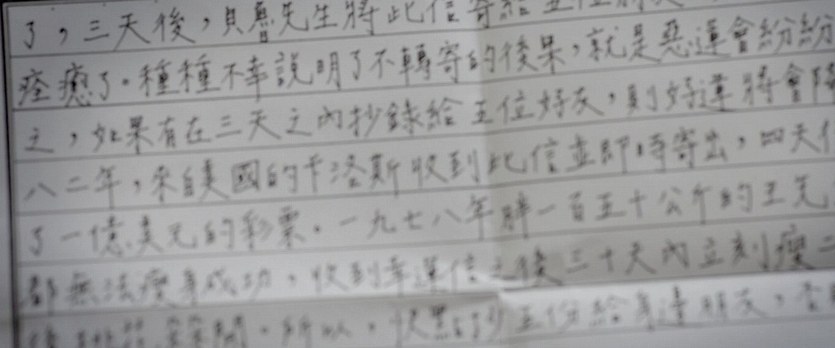 了，三天後，貝魯先生將此信寄給五位朋友
痊癒了。種種不幸説明了不轉寄的後果，就是惡運會紛紛
之，如果有在三天之內抄錄給五位好友，則好運將會降
八二年，來自美國的卡洛斯收到此信並即時寄出，四天
了一億美元的彩票。一九七八年胖一百五十公斤的王先
都無法瘦身成功，收到幸運信之後三十天內立刻瘦二
所以，快點抄五份給身邊朋友，否